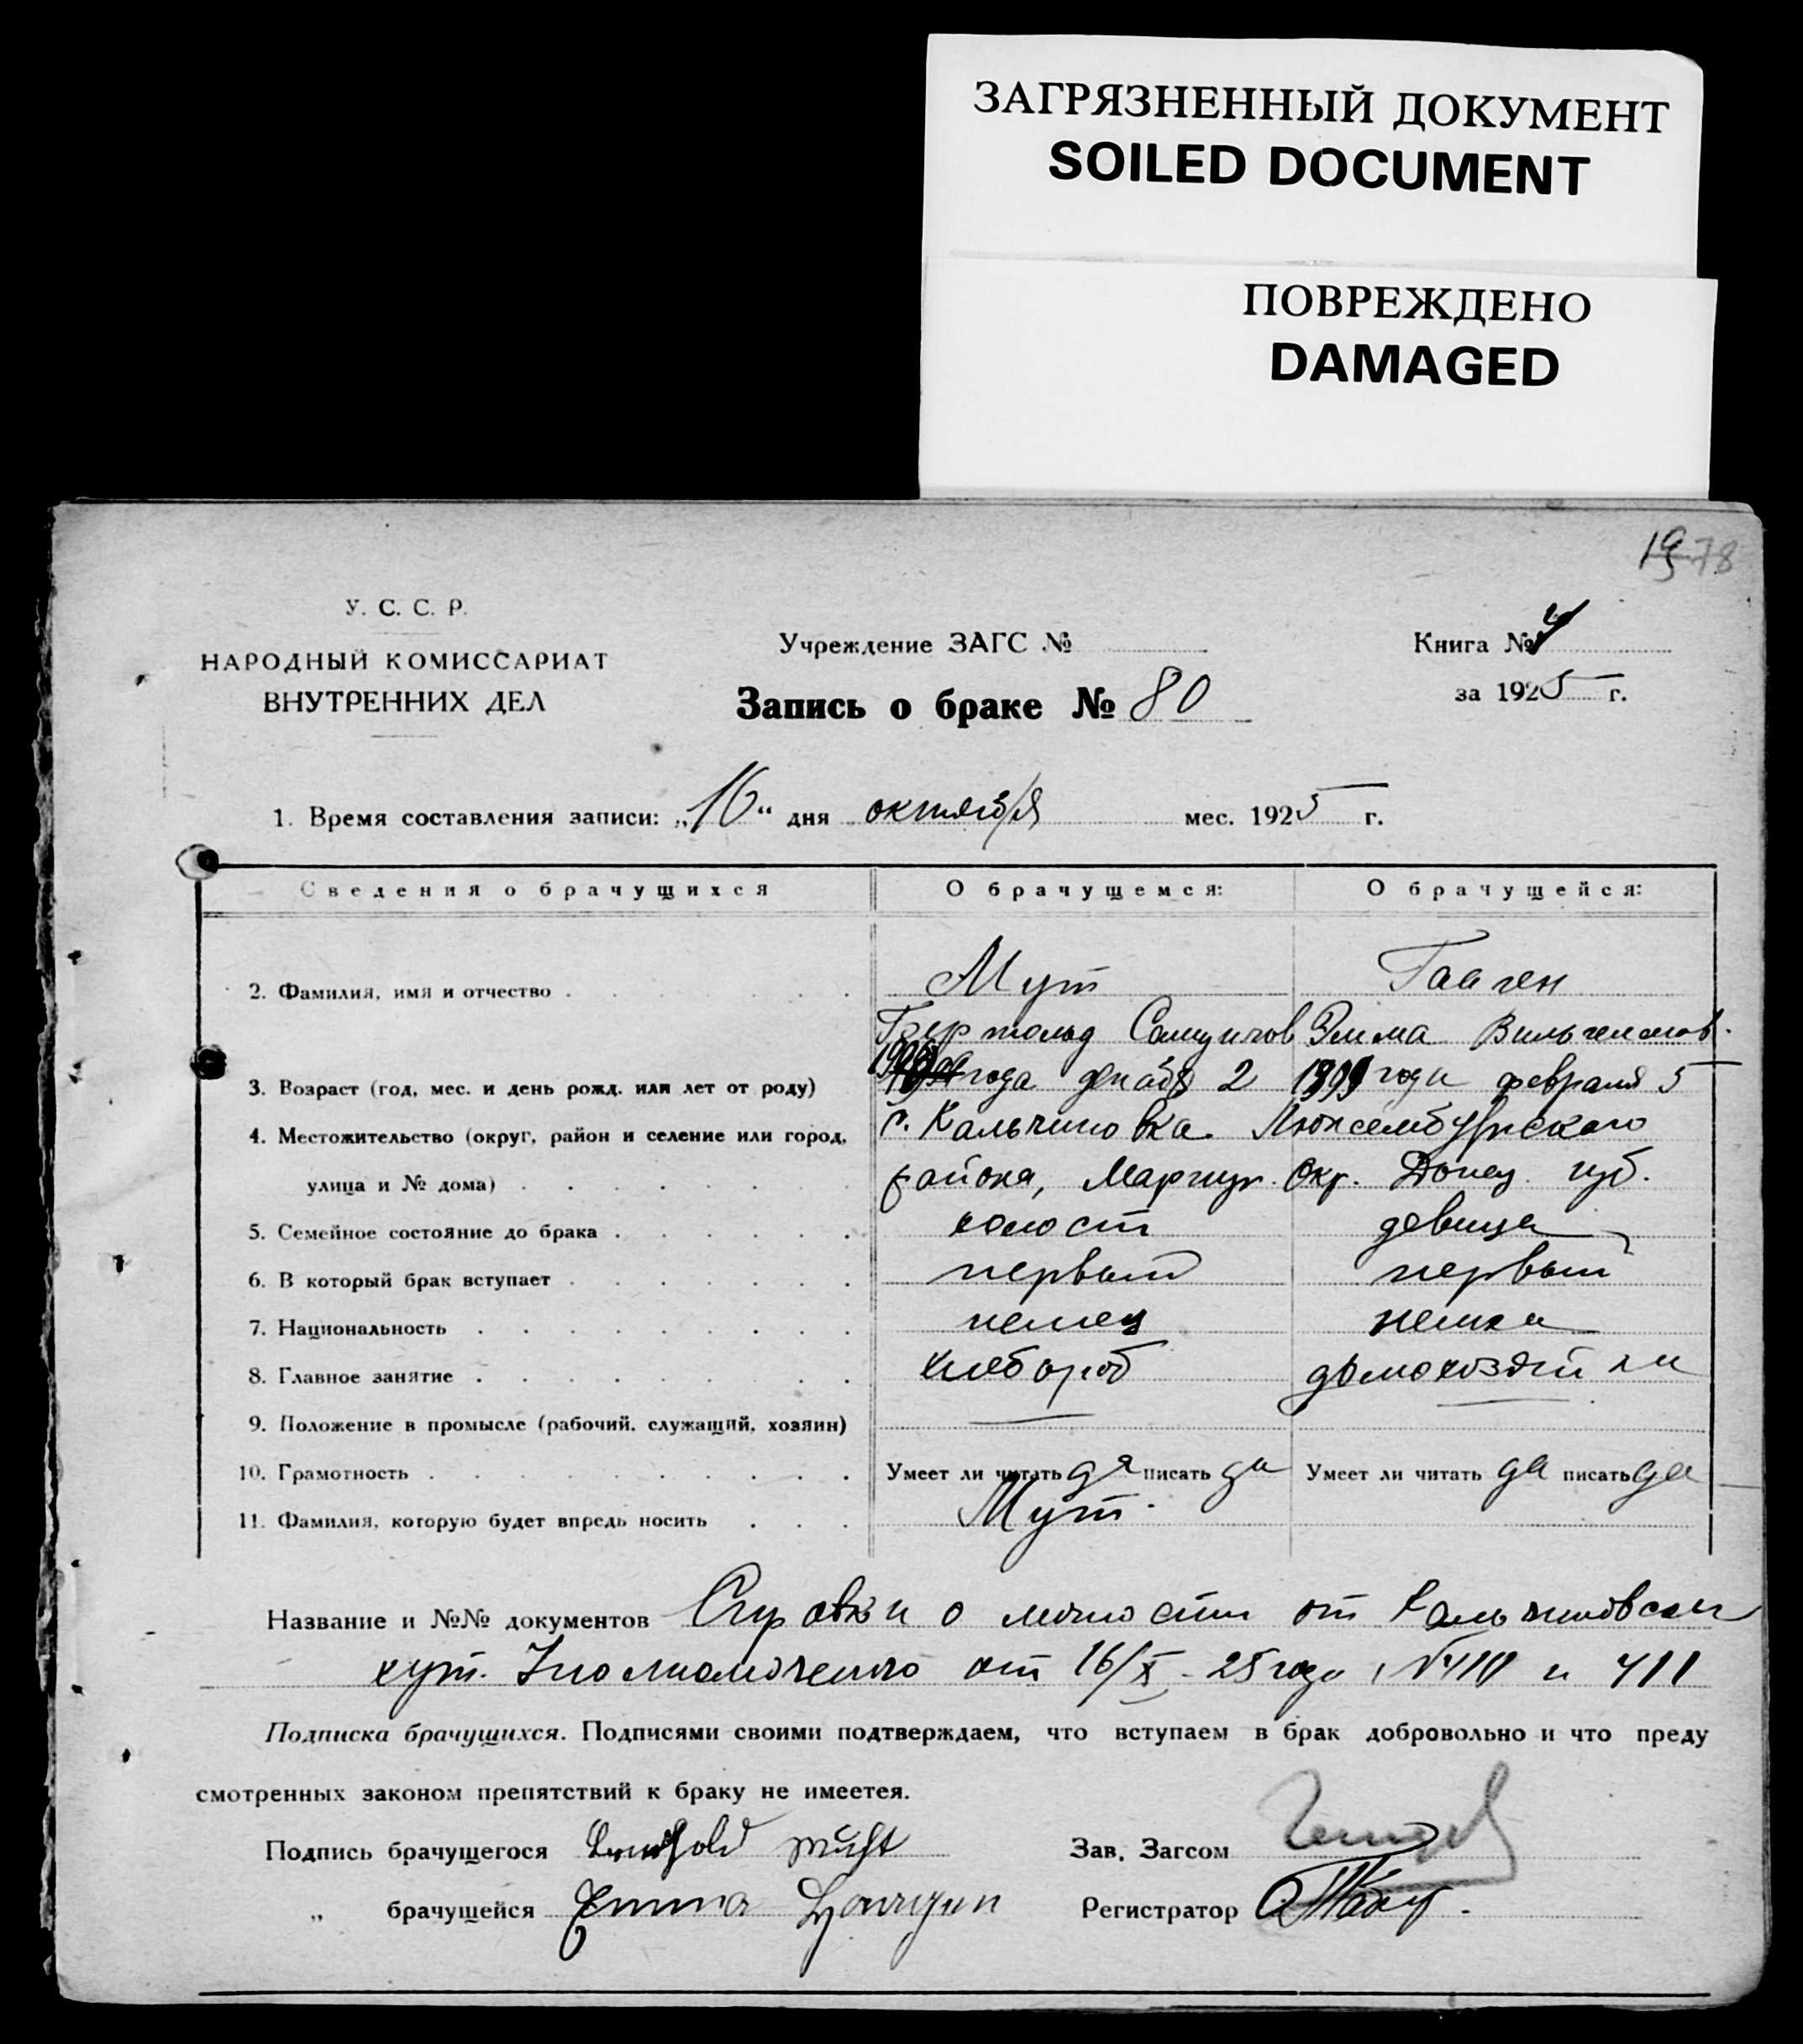 ЗАГРЯЗНЕННЫЙ ДОКУМЕНТ
SOILED DOCUMENT
ПОВРЕЖДЕНО
DAMAGED
78
У. С. С. Р.
НАРОДНЫЙ КОМИССАРИАТ
ВНУТРЕННИХ ДЕЛ
Учреждение ЗАГС №
Запись о браке № 80
Книга № 4
за 1925 г.
1. Время составления записи: „16“ дня октября мес. 1925 г.
Сведения о брачущихся О брачущемся: О брачущейся:
2. Фамилия, имя и отчество Мут Гааген
Самуилов Эмма Вильгельмов.
3. Возраст (год, мес. и день рожд. или лет от роду) года декабя 2 года февраля 5
4. Местожительство (округ, район и селение или город, с. Кальчиновка Люксембургского
улица и № дома) района, Мариуп. Окр. Донец. губ.
5. Семейное состояние до брака холост девица
6. В который брак вступает первый первый
7. Национальность немец немка
8. Главное занятие хлебороб
9. Положение в промысле (рабочий, служащий, хозяин)
10. Грамотность Умеет ли читать да писать да Умеет ли читать да писать да
11. Фамилия, которую будет впредь носить Мут.
Название и №№ документов Справки о личности от
хут. от 16/X - 25 года, и 411
Подписка брачущихся. Подписями своими подтверждаем, что вступаем в брак добровольно и что преду
смотренных законом препятствий к браку не имеетея.
Подпись брачущегося
Зав. Загсом
„ брачущейся Emma Haagen
Регистратор